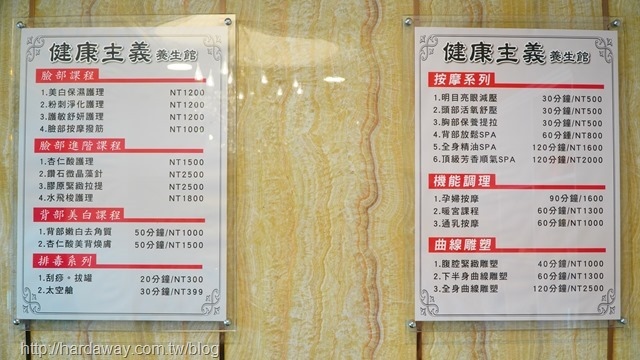 健康主義養生館
臉部課程
1.美白保濕護理 NT1200
2.粉刺淨化護理 NT1200
3.護敏舒妍護理 NT1200
4.臉部按摩撥筋 NT1000
臉部進階課程
1.杏仁酸護理 NT1500
2.鑽石微晶藻針 NT2500
3.膠原緊緻拉提 NT2500
4.水飛梭護理 NT1800
背部美白課程
1.背部嫩白去角質 50分鐘/NT1000
2.杏仁酸美背煥膚 50分鐘/NT1500
排毒系列
1.刮痧。拔罐 20分鐘/NT300
2.太空艙 30分鐘/NT399
健康主義養生館
按摩系列
1.明目亮眼減壓 30分鐘/NT500
2.頭部活氧舒壓 30分鐘/NT500
3.胸部保養提拉 30分鐘/NT500
4.背部放鬆SPA 60分鐘/NT800
5.全身精油SPA 120分鐘/NT1600
6.頂級芳香順氣SPA 120分鐘/NT2000
機能調理
1.孕婦按摩 90分鐘/1600
2.暖宮課程 60分鐘/NT1300
3.通乳按摩 60分鐘/NT1000
曲線雕塑
1.腹腔緊緻雕塑 40分鐘/NT1000
2.下半身曲線雕塑 60分鐘/NT1300
3.全身曲線雕塑 120分鐘/NT2500
http://hardaway.com.tw/blog